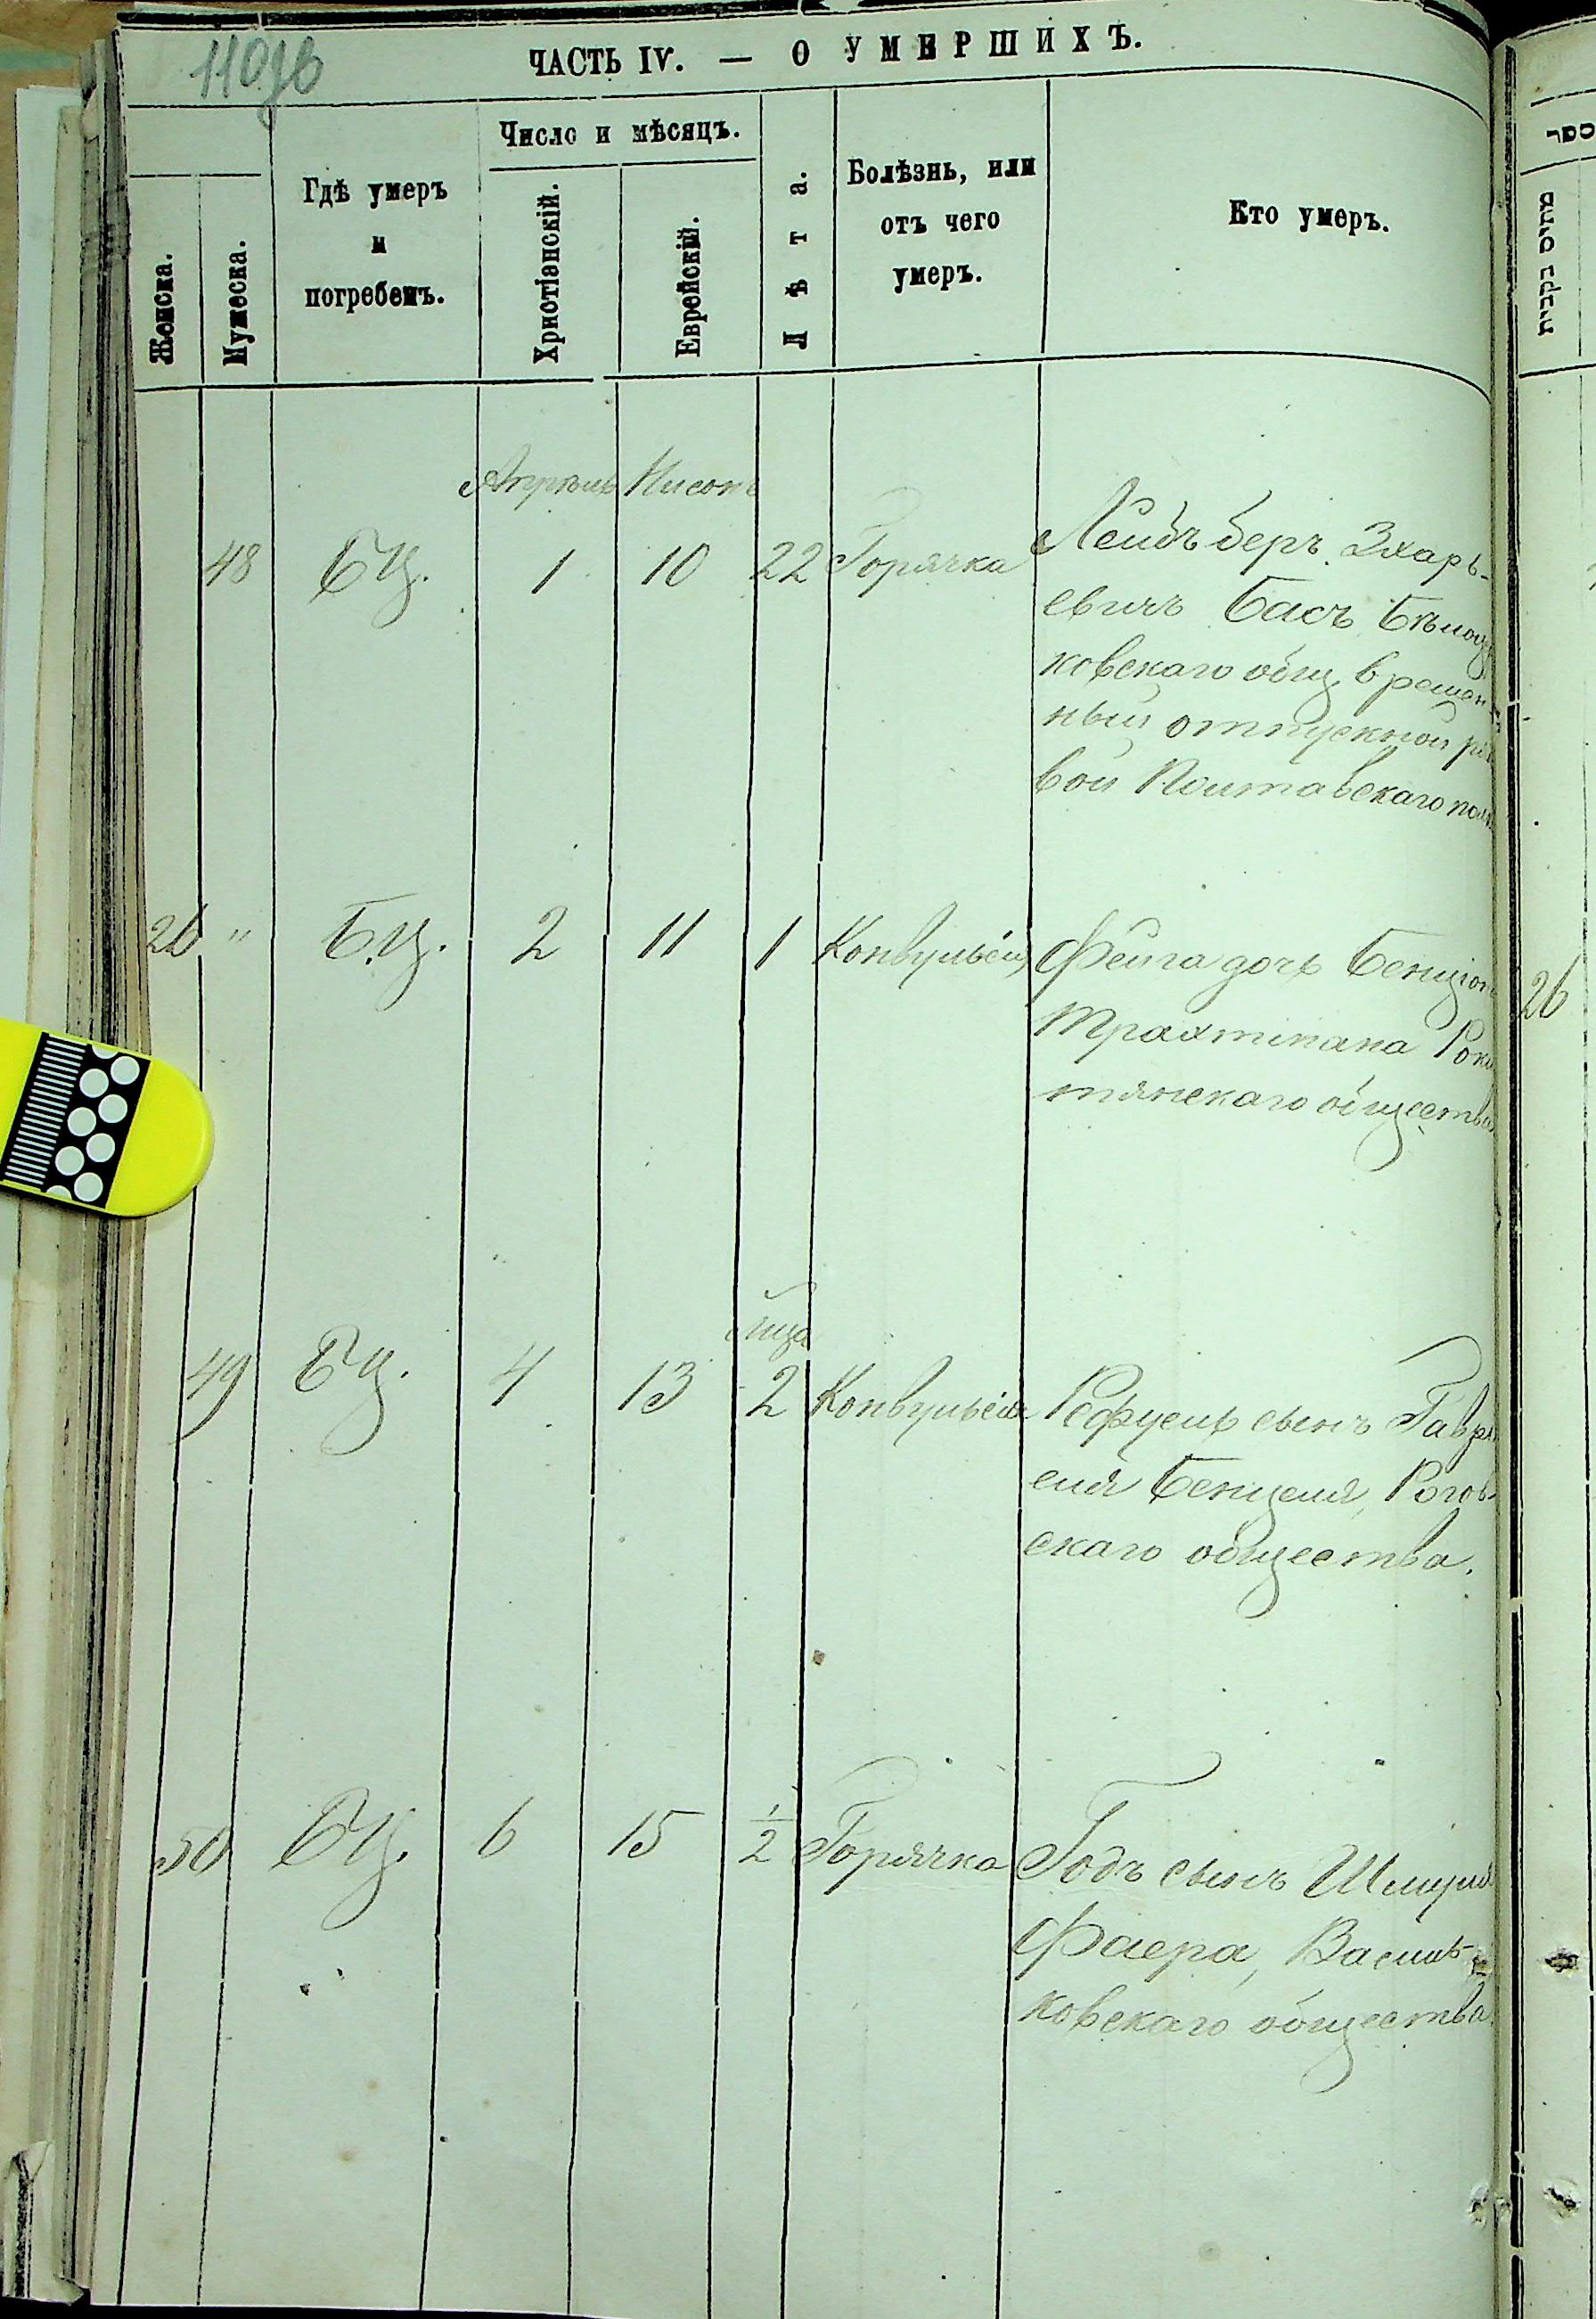 110
ЧАСТЬ IV. — О УМЕРШИХЪ.
Женска.
Мужеска.
Гдѣ умеръ
и
погребенъ.
Число и мѣсяцъ.
Христіанскій.
Еврейскій.
Лѣта.
Болѣзнь, или
отъ чего
умеръ.
Кто умеръ.
Апрѣль Нисонъ
48 БЦ. 1 10 22 Горячка Лейбъ беръ Зхарь-
евичъ Басъ
ковскаго общ.
ный отпускной
вой Полтавскаго
26 " Б.Ц. 2 11 1 Конвульсія Фейга дочь Бенціон
Трахтмана Роки
тянскаго общества
49 БЦ. 4 13 2 Конвульсія Рефуель сынъ Гаври
еля Бенцеля, Рогов-
скаго общества.
50 БЦ. 6 15 1/2 Горячка Годъ сынъ Шмуля
Фаера, Василь-
ковскаго общества.
ספר
מתים נקבות
26